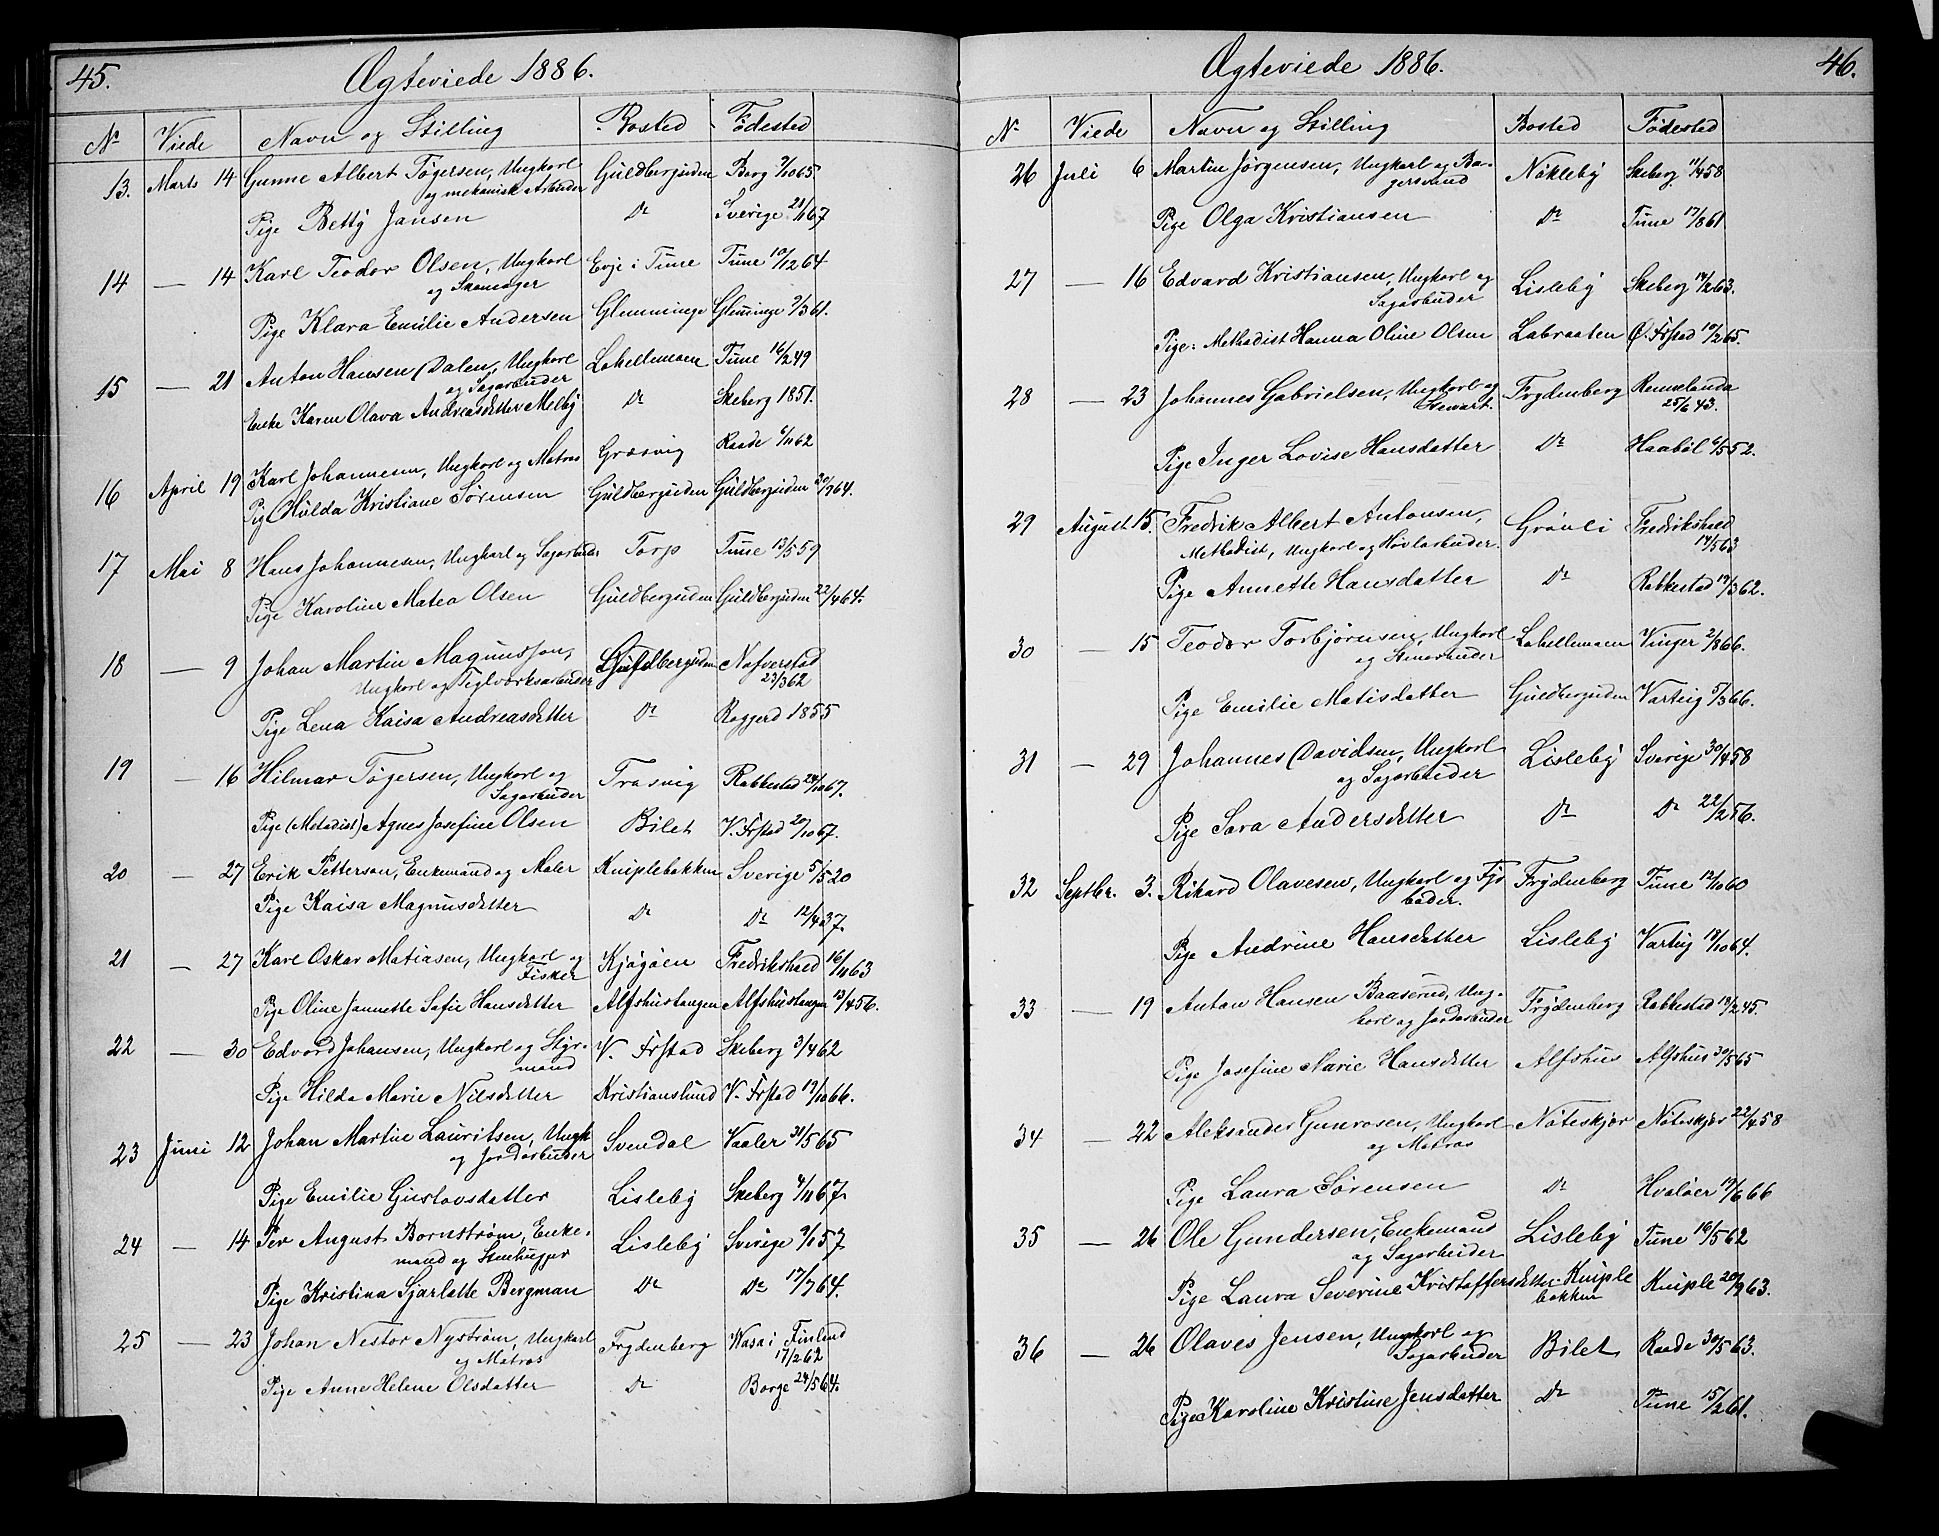 45. Ægteviede 1886.
No Viede Navn og Stilling Bosted Fødested
13. Marts 14 Gunne Albert Tøgersen, Ungkarl Guldbergsiden Borg 3/10 65
og mekanisk Arbeider
Pige Betty Jansen Do Sverige 21/11 67
14 — 14 Karl Teodor Olsen, Ungkarl Evje i Tune Tune 10/12 64
og Skomager
Pige Klara Emilie Andersen Glemminge Glemminge 9/3 61.
15 — 21 Anton Hansen Dalen, Ungkarl Lahellemoen Tune 16/2 49
og Sagarbeider
Enke Karen Olava Andreasdetter Melby Do Skeberg 1851.
16 April 19 Karl Johannesen, Ungkarl og Matros Græsvig Raade 6/11 62
Pige Hulda Kristiane Sørensen Guldbergsiden Guldbergsiden 20/9 64.
17 Mai 8 Hans Johannesen, Ungkarl og Sagarbeider Torp Tune 13/5 59
Pige Karoline Matea Olsen Guldbergsiden Guldbergsiden 22/4 64.
18 — 9 Johan Martin Magnusson, Guldbergsiden Nafverstad
Ungkarl og Teglværksarbeider 23/3 62
Pige Lena Kaisa Andreasdetter Do Raggerd 1855
19 — 16 Hilmar Tøgersen, Ungkarl og Trosvig Rakkestad 24/10 67.
Sagarbeider
Pige (Metodist) Agnes Josefine Olsen Bilet V. Frstad 20/10 67.
20 — 27 Erik Petterson, Enkemand og Maler Kniplebakken Sverige 5/5 20
Pige Kaisa Magnusdetter Do Do 12/4 37.
21 — 27 Karl Oskar Matiasen, Ungkarl og Kjøgøen Fredrikshald 16/11 63
Fisker
Pige Oline Jannette Sofie Hansdetter Alfshustangen Alfshustangen 13/4 56.
22 — 30 Edvard Johansen, Ungkarl og Styr- V. Frstad Skeberg 3/4 62
mand
Pige Hilda Marie Nilsdetter Kristianslund V. Frstad 19/10 66.
23 Juni 12 Johan Martin Lauritsen, Ungk Svendal Vaaler 31/5 65
og Jordarbeider
Pige Emilie Gustavsdatter Lisleby Skeberg 4/11 67.
24 — 14 Per August Bornstrøm, Enke- Lisleby Sverige 9/1 57
mand og Stenhugger
Pige Kristina Sjarlotte Bergman Do Do 17/7 64.
25 — 23 Johan Nestor Nystrøm, Ungkarl Frydenberg Wasa i Finland
og Matros 17/2 62
Pige Anne Helene Olsdatter Do Borge 24/5 64.
Ægteviede 1886. 46.
No Viede Navn og Stilling Bosted Fødested
26 Juli 6 Martin Jørgensen, Ungkarl og Ba- Nøkleby Skeberg 11/4 58
gersvend
Pige Olga Kristiansen Do Tune 17/8 61
27 — 16 Edvard Kristiansen, Ungkarl og Lisleby Skeberg 14/2 63.
Sagarbeider
Pige: Methodist Hanna Oline Olsen Labraaten Ø. Frstad 10/2 65.
28 — 23 Johannes Gabrielsen, Ungkarl og Frydenberg Rennelanda
Stewart. 25/6 43.
Pige Inger Lovise Hansdatter Do Haabøl 6/5 52.
29 August 15. Fredrik Albert Antonsen, Grønli Fredrikshald
Methodist, Ungkarl og Høvlarbeider. 14/5 63
Pige Annette Hansdatter Do Rakkestad 17/3 62.
30 — 15 Teodor Torbjørnsen, Ungkarl Lahellemoen Vinger 2/8 66.
og Stenarbeider
Pige Emilie Matisdatter Guldbergsiden Varteig 5/3 66.
31 — 29 Johannes Davidsen, Ungkarl Lisleby Sverige 30/4 58
og Sagarbeider
Pige Sara Andersdetter Do Do 22/2 56.
32 Septbr. 3. Rikard Olavesen, Ungkarl og Fyr Frydenberg Tune 12/10 60
bøder.
Pige Andrine Hansdetter Lisleby Varteig 18/10 64.
33 — 19 Anton Hansen Baaserud, Ung- Frydenberg Rakkestad 13/2 45.
karl og Jordarbeider
Pige Josefine Marie Hansdetter Alfshus Alfshus 30/5 65
34 — 22 Aleksander Gunrosen, Ungkarl Nøteskjær Nøteskjær 22/4 58
og Matros
Pige Laura Sørensen Do Hvaløer 19/6 66
35 — 26 Ole Gundersen, Enkemand Lisleby Tune 16/5 62
og Sagarbeider
Pige Laura Severine Kristoffersdetter Kniple Kniple 20/9 63.
bakken
36 — 26 Olaves Jensen, Ungkarl og Bilet Raade 30/5 63.
Sagarbeider
Pige Karoline Kristine Jensdatter Do Tune 15/2 61.